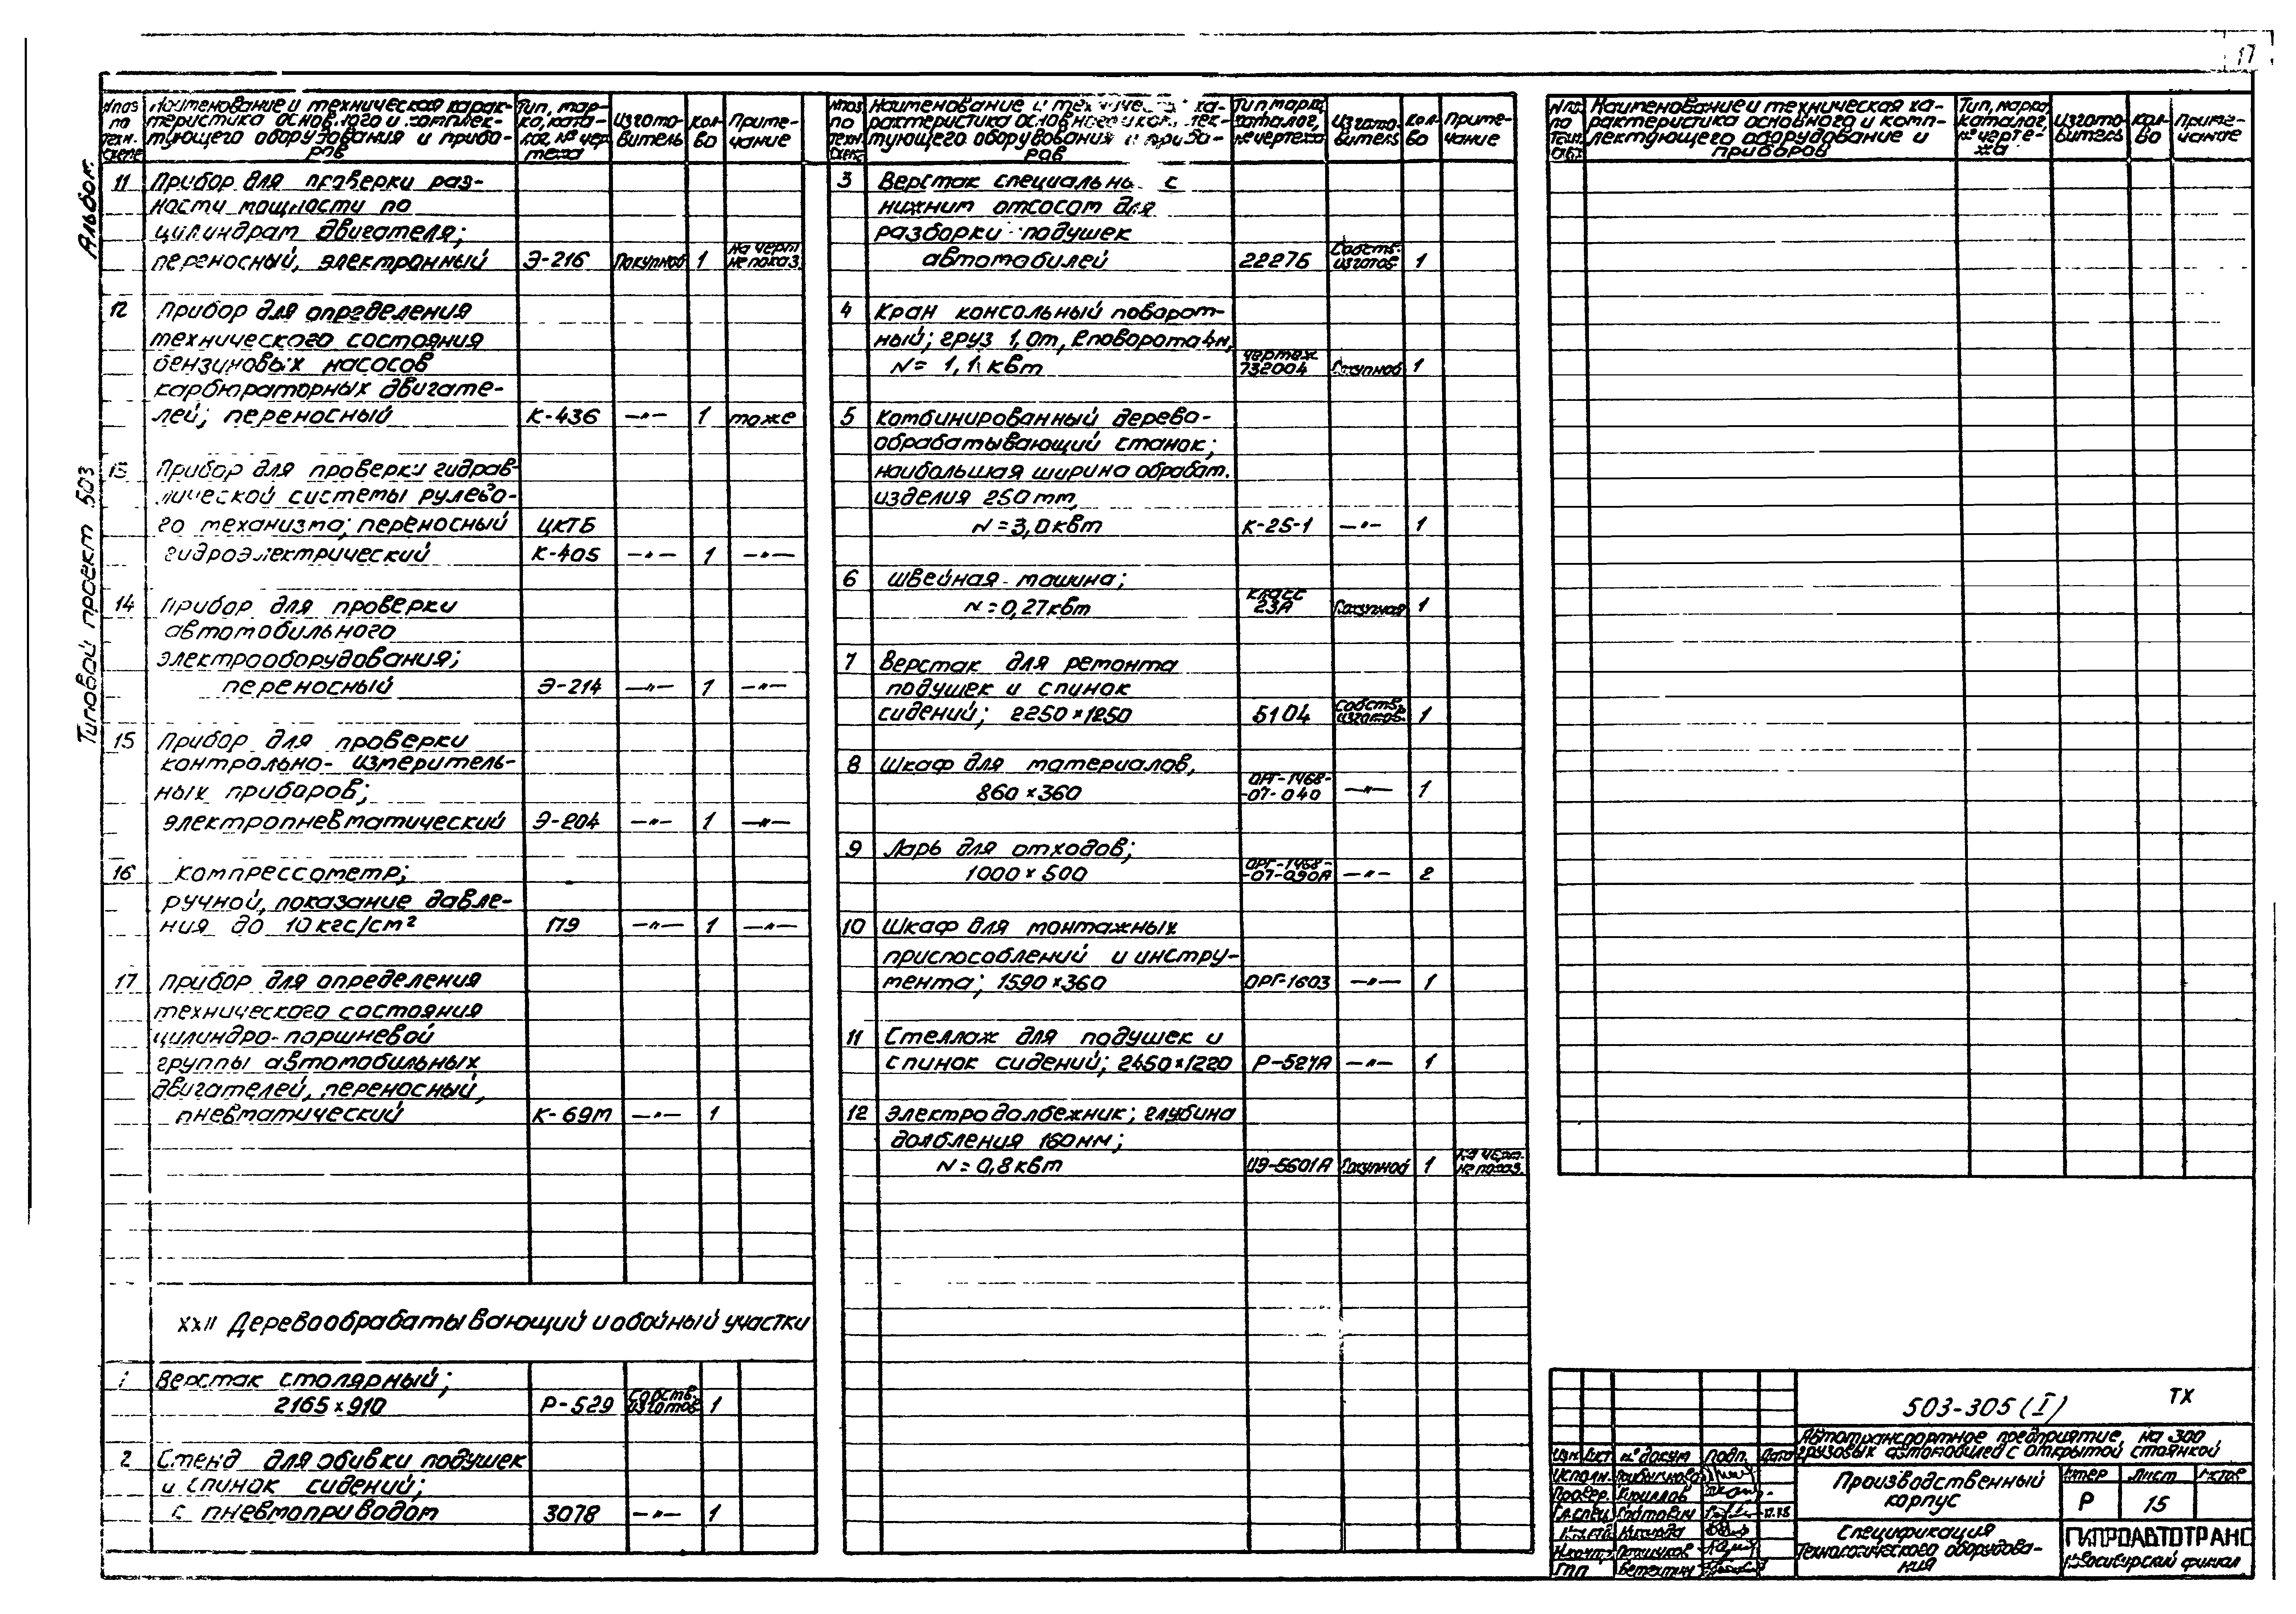 17
Альбом
Типовой проект 503
№ поз по техн. схеме
Наименование и техническая харак-
теристика основного и комплек-
тующего оборудования и прибо-
ров
Тип, мар-
ка, ката-
лог, № чер
тежа
Изгото-
витель
Кол-
во
Приме-
чание
11 Прибор для проверки раз-
ности мощности по
цилиндрам двигателя;
переносный, электронный Э-216 Покупной 1 на черт. не показ.
12 Прибор для определения
технического состояния
бензиновых насосов
карбюраторных двигате-
лей; переносный К-436 —"— 1 тоже
13 Прибор для проверки гидрав-
лической системы рулево-
го механизма; переносный ЦКТБ
гидроэлектрический К-405 —"— 1 —"—
14 Прибор для проверки
автомобильного
электрооборудования;
переносный Э-214 —"— 1 —"—
15 Прибор для проверки
контрольно-измеритель-
ных приборов;
электропневматический Э-204 —"— 1 —"—
16 Компрессометр;
ручной, показание давле-
ния до 10 кгс/см² 179 —"— 1 —"—
17 Прибор для определения
технического состояния
цилиндро-поршневой
группы автомобильных
двигателей, переносный,
пневматический К-69М —"— 1
XXII Деревообрабатывающий и обойный участки
1 Верстак столярный;
2165×910 Р-529 Собств. изготов. 1
2 Стенд для обивки подушек
и спинок сидений;
с пневмоприводом 3078 —"— 1
№ поз по техн. схеме
Наименование и техническая ха-
рактеристика основного и комплек-
тующего оборудования и прибо-
ров
Тип, марка,
каталог,
№ чертежа
Изгото-
витель
Кол-
во
Приме-
чание
3 Верстак специальный с
нижним отсосом для
разборки подушек
автомобилей 2227Б Собств. изготов 1
4 Кран консольный поворот-
ный; груз 1,0т, R поворота 4м,
N = 1,1 квт чертеж 732004 Покупной 1
5 Комбинированный дерево-
обрабатывающий станок;
наибольшая ширина обработ.
изделия 250 мм,
N = 3,0 квт К-25-1 —"— 1
6 Швейная машина;
N = 0,27 квт класс 23А Покупная 1
7 Верстак для ремонта
подушек и спинок
сидений; 2250×1250 5104 Собств. изготов. 1
8 Шкаф для материалов,
860×360 ОРГ-1468-
-07-040 —"— 1
9 Ларь для отходов;
1000×500 ОРГ-1468-
-07-090А —"— 2
10 Шкаф для монтажных
приспособлений и инстру-
мента; 1590×360 ОРГ-1603 —"— 1
11 Стеллаж для подушек и
спинок сидений; 2450×1220 Р-527А —"— 1
12 Электродолбежник; глубина
долбления 160мм;
N = 0,8 квт ИЭ-5601А Покупной 1 на черт. не показ.
№ поз. по техн. схеме
Наименование и техническая ха-
рактеристика основного и комп-
лектующего оборудование и
приборов
Тип, марка,
каталог,
№ черте-
жа
Изгото-
витель
Кол-
во
Приме-
чание
503-305 (I) ТХ
Автотранспортное предприятие на 300
грузовых автомобилей с открытой стоянкой
Изм. Лист № докум Подп. Дата
Исполн.
Провер. Кириллов
Гл. спец.
Н.контр.
ГИП
Производственный
корпус
Литер Лист Листов
Р 15
Спецификация
технологического оборудова-
ния
ГИПРОАВТОТРАНС
Новосибирский филиал